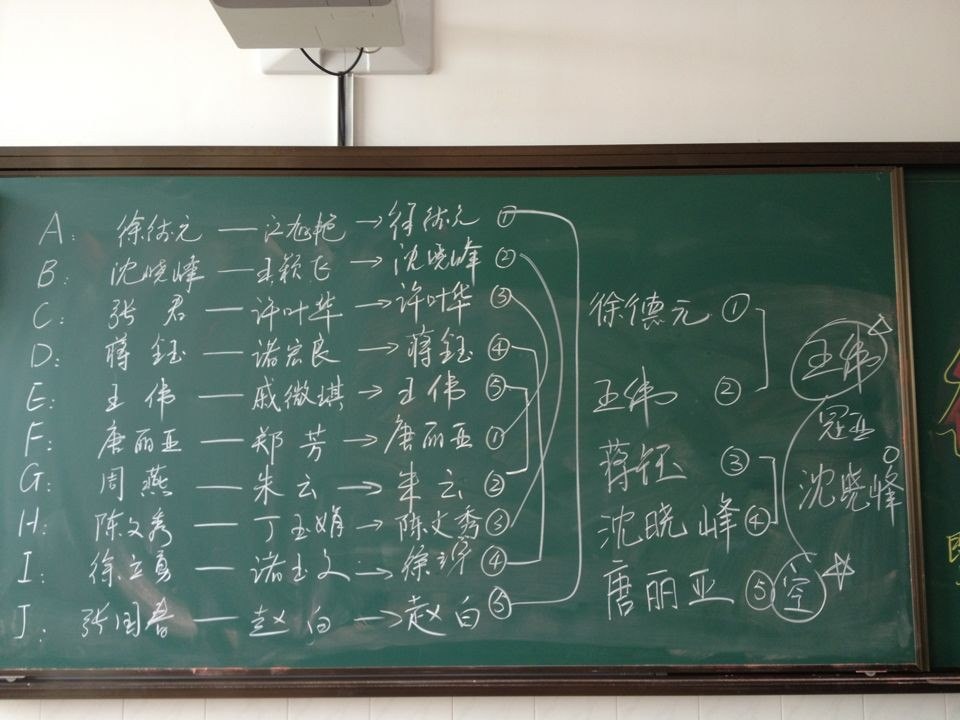 A: 徐德元 — 江旭艳 → 徐德元 ①
B: 沈晓峰 — 王颖飞 → 沈晓峰 ②
C: 张 君 — 许叶华 → 许叶华 ③
D: 蒋 钰 — 诸宏良 → 蒋钰 ④
E: 王 伟 — 戚微琪 → 王伟 ⑤
F: 唐丽亚 — 郑 芳 → 唐丽亚 ①
G: 周 燕 — 朱 云 → 朱云 ②
H: 陈文秀 — 丁玉娟 → 陈文秀 ③
I: 徐立勇 — 诸玉文 → 徐 ④
J: 张国春 — 赵 白 → 赵白 ⑤
徐德元 ①
王伟 ②
蒋钰 ③
沈晓峰 ④
唐丽亚 ⑤
王伟
冠亚
沈晓峰
空